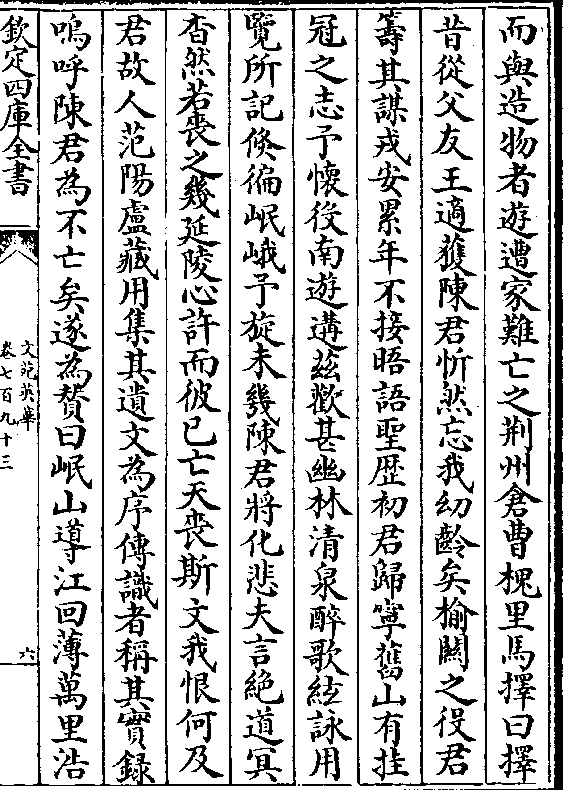 而與造物者遊遭家難亡之荆州倉曹槐里馬擇曰擇
昔從父友王適獲陳君忻然忘我幼齡矣榆關之役君
籌其謀戎安累年不接晤語聖歴初君歸寧舊山有挂
冠之志予懷役南遊遘兹歡甚幽林清泉醉歌絃詠用
覽所記倐徧岷峨予旋未幾陳君將化悲夫言絶道冥
杳然若喪之幾延陵心許而彼已亡天喪斯文我恨何及
君故人范陽盧藏用集其遺文為序傳識者稱其實録
嗚呼陳君為不亡矣遂為贊曰岷山導江回薄萬里浩
欽定四庫全書
文苑英華
卷七百九十三
六